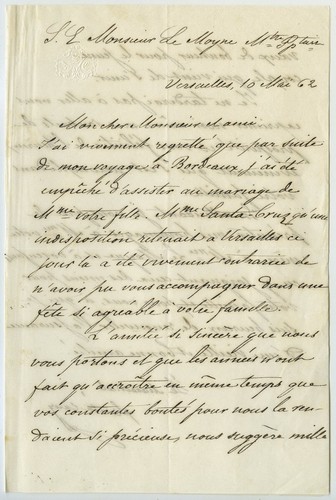 S. E. Monsieur Le Moyne Mtre Pptaire
Versailles, 10 Mai 62
Mon cher Monsieur et ami
J'ai vivement regretté que par suite
de mon voyage à Bordeaux j'ai été
empêché d'assister au mariage de
Mme votre fille. Mme Santa-Cruz qu'une
indisposition retenait à Versailles ce
jour là a été vivement contrariée de
n'avoir pu vous accompagner dans une
fête si agréable à votre famille.
L'amitié si sincère que nous
vous portons et que les années n'ont
fait qu'accroître en même temps que
vos constantes bontés pour nous la ren-
daient si précieuse, nous suggère mille